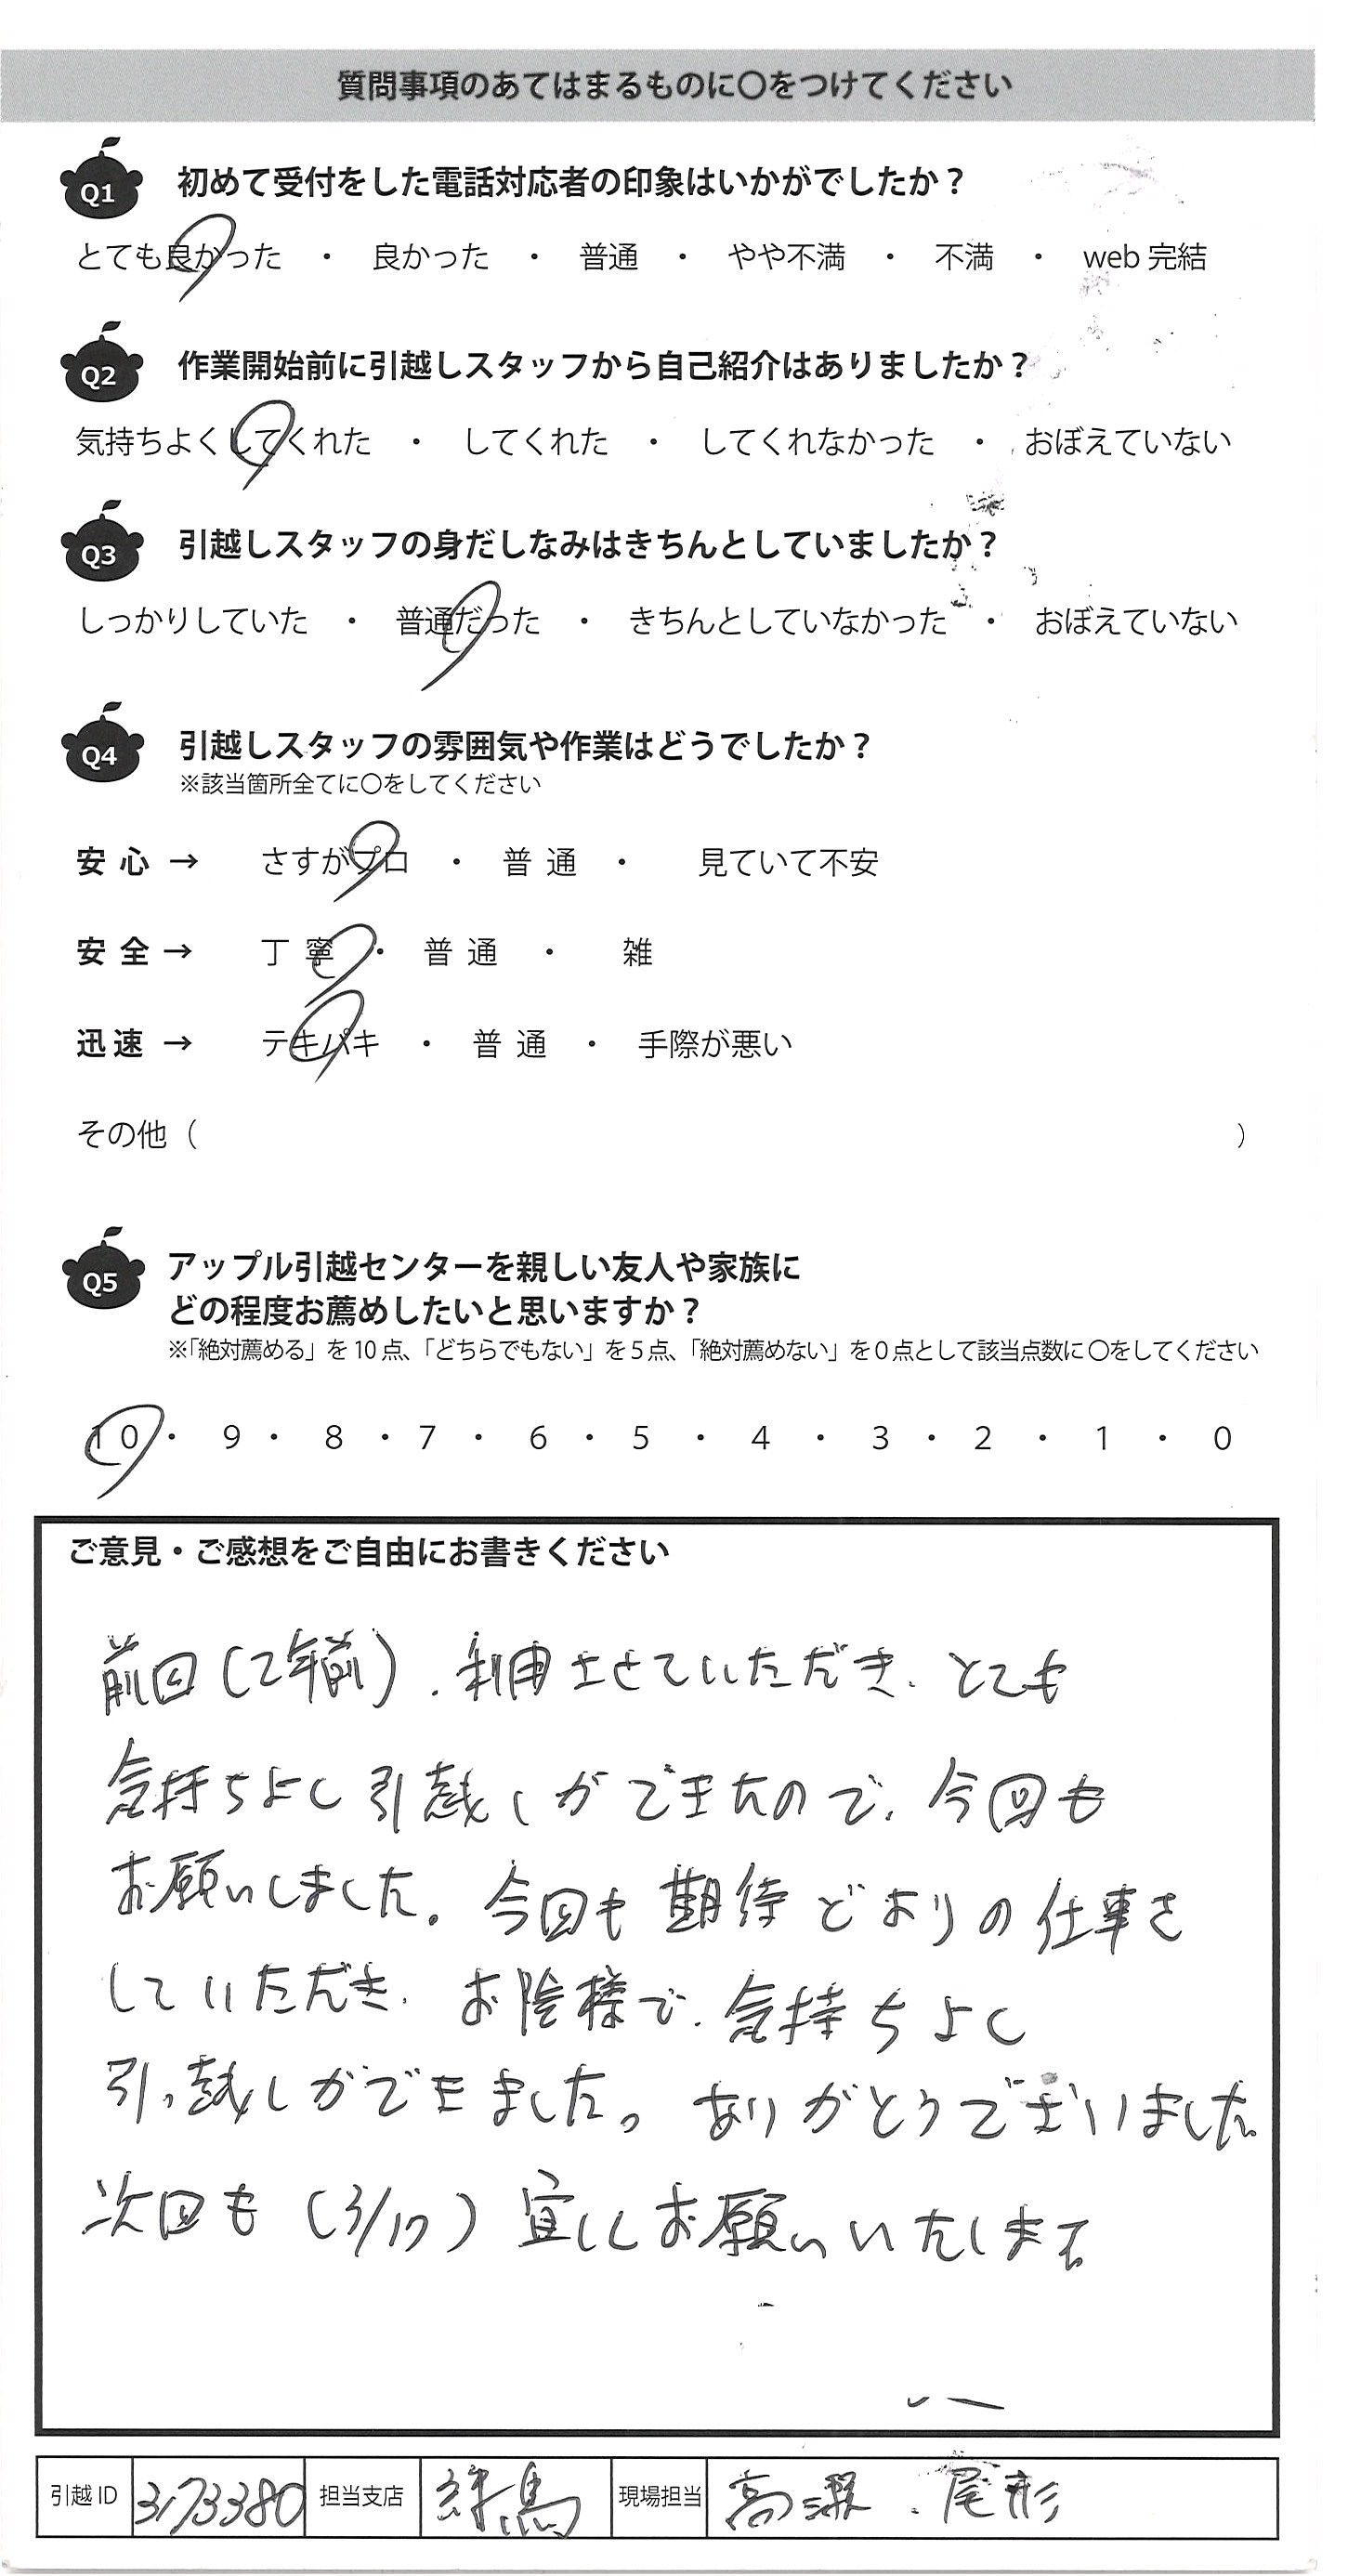 質問事項のあてはまるものに〇をつけてください
Q1 初めて受付をした電話対応者の印象はいかがでしたか？
とても良かった ・ 良かった ・ 普通 ・ やや不満 ・ 不満 ・ web 完結
Q2 作業開始前に引越しスタッフから自己紹介はありましたか？
気持ちよくしてくれた ・ してくれた ・ してくれなかった ・ おぼえていない
Q3 引越しスタッフの身だしなみはきちんとしていましたか？
しっかりしていた ・ 普通だった ・ きちんとしていなかった ・ おぼえていない
Q4 引越しスタッフの雰囲気や作業はどうでしたか？
※該当箇所全てに〇をしてください
安心 → さすがプロ ・ 普通 ・ 見ていて不安
安全 → 丁寧 ・ 普通 ・ 雑
迅速 → テキパキ ・ 普通 ・ 手際が悪い
その他（ ）
Q5 アップル引越センターを親しい友人や家族に
どの程度お薦めしたいと思いますか？
※「絶対薦める」を10点、「どちらでもない」を5点、「絶対薦めない」を0点として該当点数に〇をしてください
10 ・ 9 ・ 8 ・ 7 ・ 6 ・ 5 ・ 4 ・ 3 ・ 2 ・ 1 ・ 0
ご意見・ご感想をご自由にお書きください
前回（2年前）、利用させていただき、とても
気持ちよく引越しができたので、今回も
お願いしました。今回も期待どおりの仕事を
していただき、お陰様で、気持ちよく
引っ越しができました。ありがとうございました。
次回も（3/17）宜しくお願いいたします
引越ID 3173380 担当支店 練馬 現場担当 高瀬、尾形